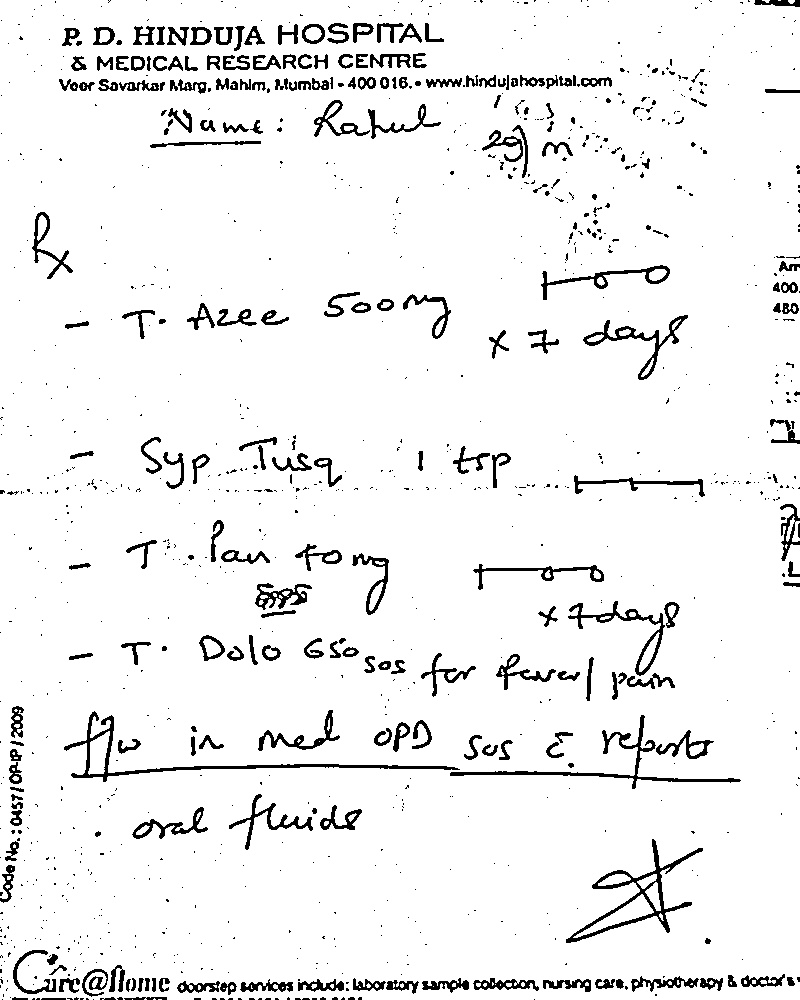 P. D. HINDUJA HOSPITAL
& MEDICAL RESEARCH CENTRE
Veer Savarkar Marg, Mahim, Mumbai - 400 016. • www.hindujahospital.com
Name: Rahul
29/m
Rx
- T. Azee 500mg
x 7 days
- Syp Tusq 1 tsp
- T. Pan 40 mg
x 7 days
- T. Dolo 650 sos for fever/pain
f/w in med OPD sos c̄ reports
. oral fluids
Code No.: 0457/OP-IP/2009
Care@Home doorstep services include: laboratory sample collection, nursing care, physiotherapy & doctor's
400.
480